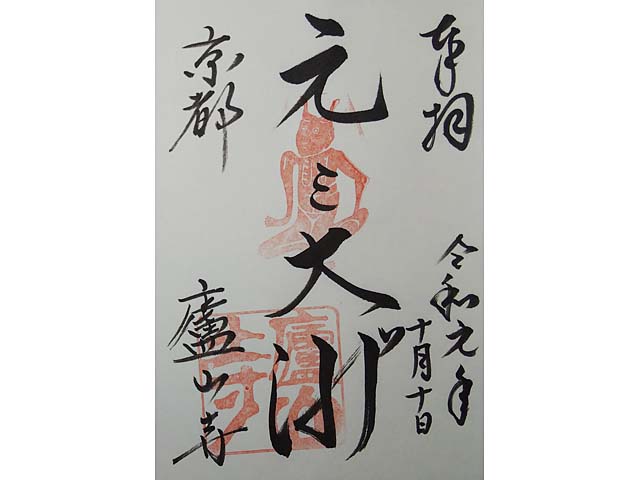 奉拝
令和元年
十月十日
元三大師
京都
廬山寺
廬山
寺